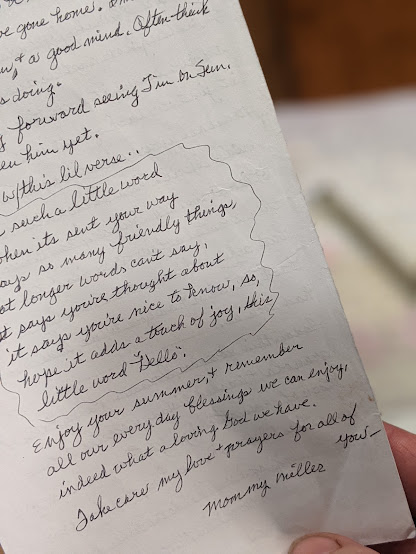 ve gone home.
& a good mind. Often think
s doing.
forward seeing Jim on Sun.
en him yet.
w/this lil verse..
such a little word
when its sent your way
says so many friendly things,
at longer words can't say,
t says you're thought about
it says you're nice to know, so,
hope it adds a touch of joy, this
little word "Hello".
Enjoy your summer, & remember
all our everyday blessings we can enjoy,
indeed what a loving God we have.
Take care my love & prayers for all of
you—
Mommy Miller